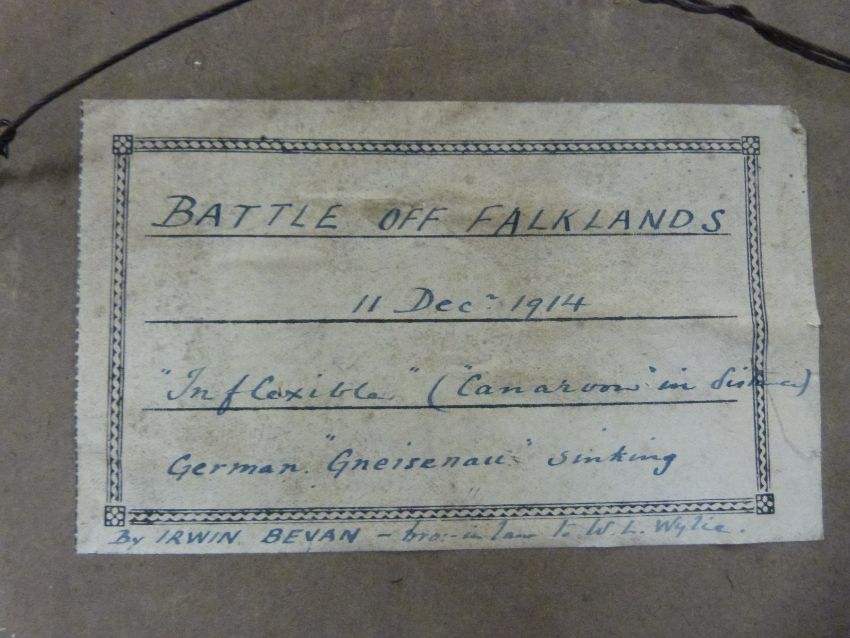 BATTLE OFF FALKLANDS
11 Decr 1914
"Inflexible" ("Canarvon" in distance)
German "Gneisenau" sinking
By IRWIN BEVAN – bro-in law to W. L. Wylie.